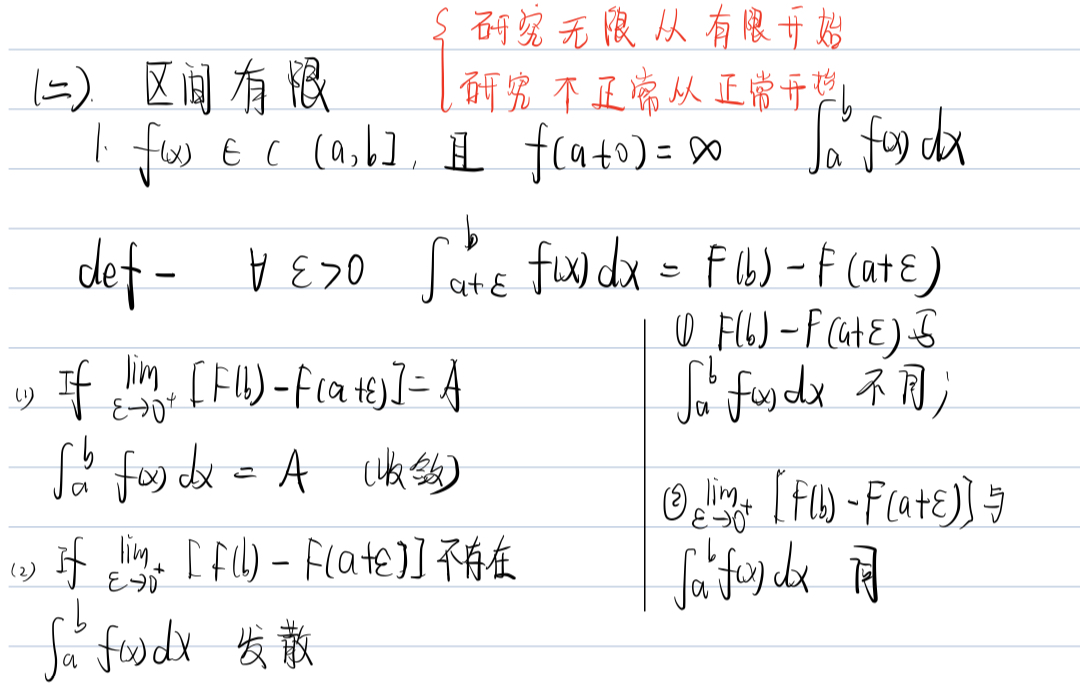 研究无限从有限开始
研究不正常从正常开始
(二). 区间有限
1. f(x) ∈ C (a,b], 且 f(a+0) = ∞ ∫_a^b f(x) dx
def - ∀ ε>0 ∫_{a+ε}^b f(x) dx = F(b) - F(a+ε)
(1) If lim_{ε→0⁺} [F(b) - F(a+ε)] = A
∫_a^b f(x) dx = A (收敛)
(2) If lim_{ε→0⁺} [F(b) - F(a+ε)] 不存在
∫_a^b f(x) dx 发散
① F(b) - F(a+ε) 与
∫_a^b f(x) dx 不同;
② lim_{ε→0⁺} [F(b) - F(a+ε)] 与
∫_a^b f(x) dx 同